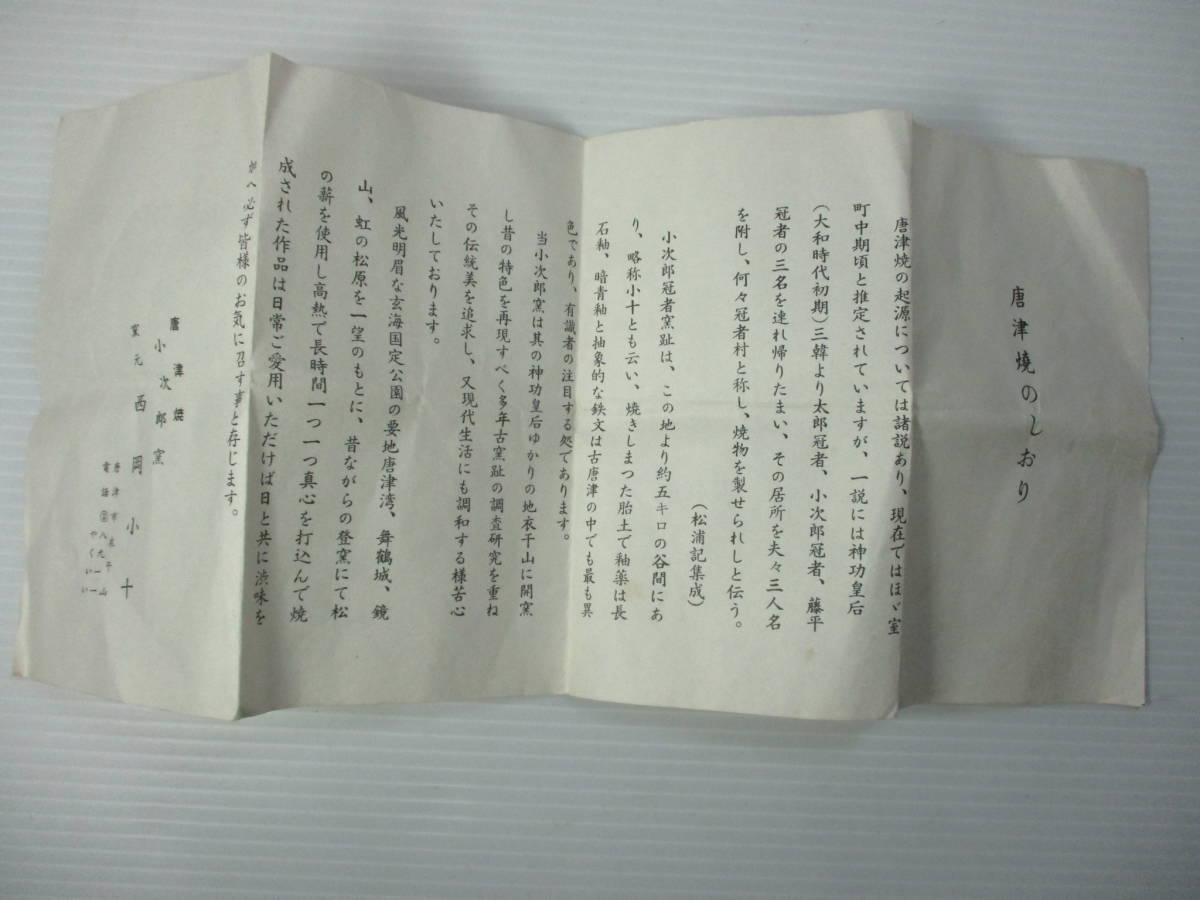 唐津焼のしおり
唐津焼の起源については諸説あり、現在ではほゞ室
町中期頃と推定されていますが、一説には神功皇后
(大和時代初期)三韓より太郎冠者、小次郎冠者、藤平
冠者の三名を連れ帰りたまい、その居所を夫々三人名
を附し、何々冠者村と称し、焼物を製せられしと伝う。
(松浦記集成)
小次郎冠者窯趾は、この地より約五キロの谷間にあ
り、略称小十とも云い、焼きしまつた胎土で釉薬は長
石釉、暗青釉と抽象的な鉄文は古唐津の中でも最も異
色であり、有識者の注目する処であります。
当小次郎窯は其の神功皇后ゆかりの地衣干山に開窯
し昔の特色を再現すべく多年古窯趾の調査研究を重ね
その伝統美を追求し、又現代生活にも調和する様苦心
いたしております。
風光明眉な玄海国定公園の要地唐津湾、舞鶴城、鏡
山、虹の松原を一望のもとに、昔ながらの登窯にて松
の薪を使用し高熱で長時間一つ一つ真心を打込んで焼
成された作品は日常ご愛用いただけば日と共に渋味を
加へ必ず皆様のお気に召す事と存じます。
唐津焼
小次郎窯
窯元 西岡小十
唐津市衣干山
電話②八九一一
やくいい